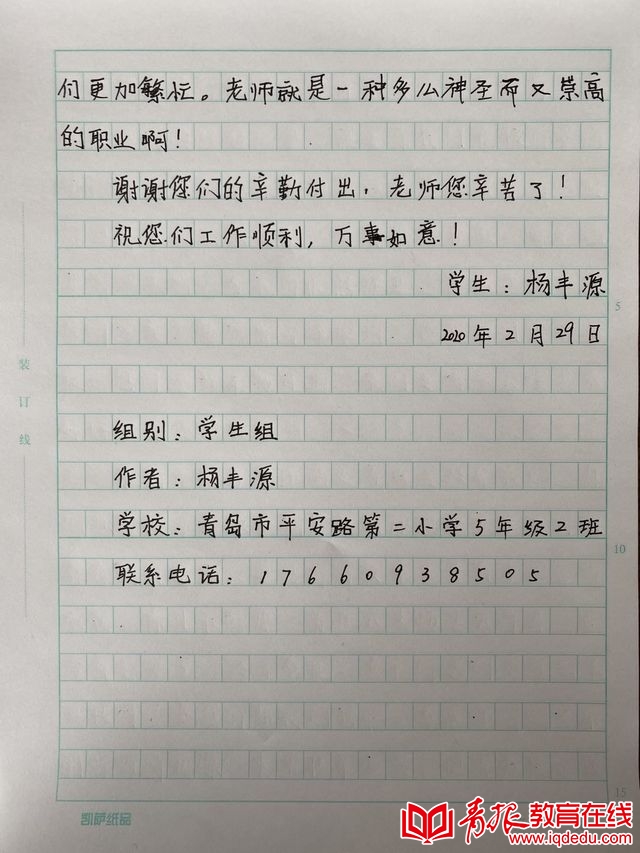 们更加繁忙。老师就是一种多么神圣而又崇高
的职业啊！
谢谢您们的辛勤付出，老师您辛苦了！
祝您们工作顺利，万事如意！
学生：杨丰源
5
2020年2月29日
装订线
组别：学生组
作者：杨丰源
学校：青岛市平安路第二小学5年级2班
10
联系电话：17660938505
15
凯萨纸品
青报教育在线
www.iqdedu.com